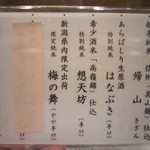 帰山
きざん
あらばしり生原酒
特別純米
はなぶさ
(辛口)
希少酒米「高嶺錦」仕込
特別純米
想天坊
(辛口)
新潟県内限定出荷
限定純米
梅の舞
(やや辛口)